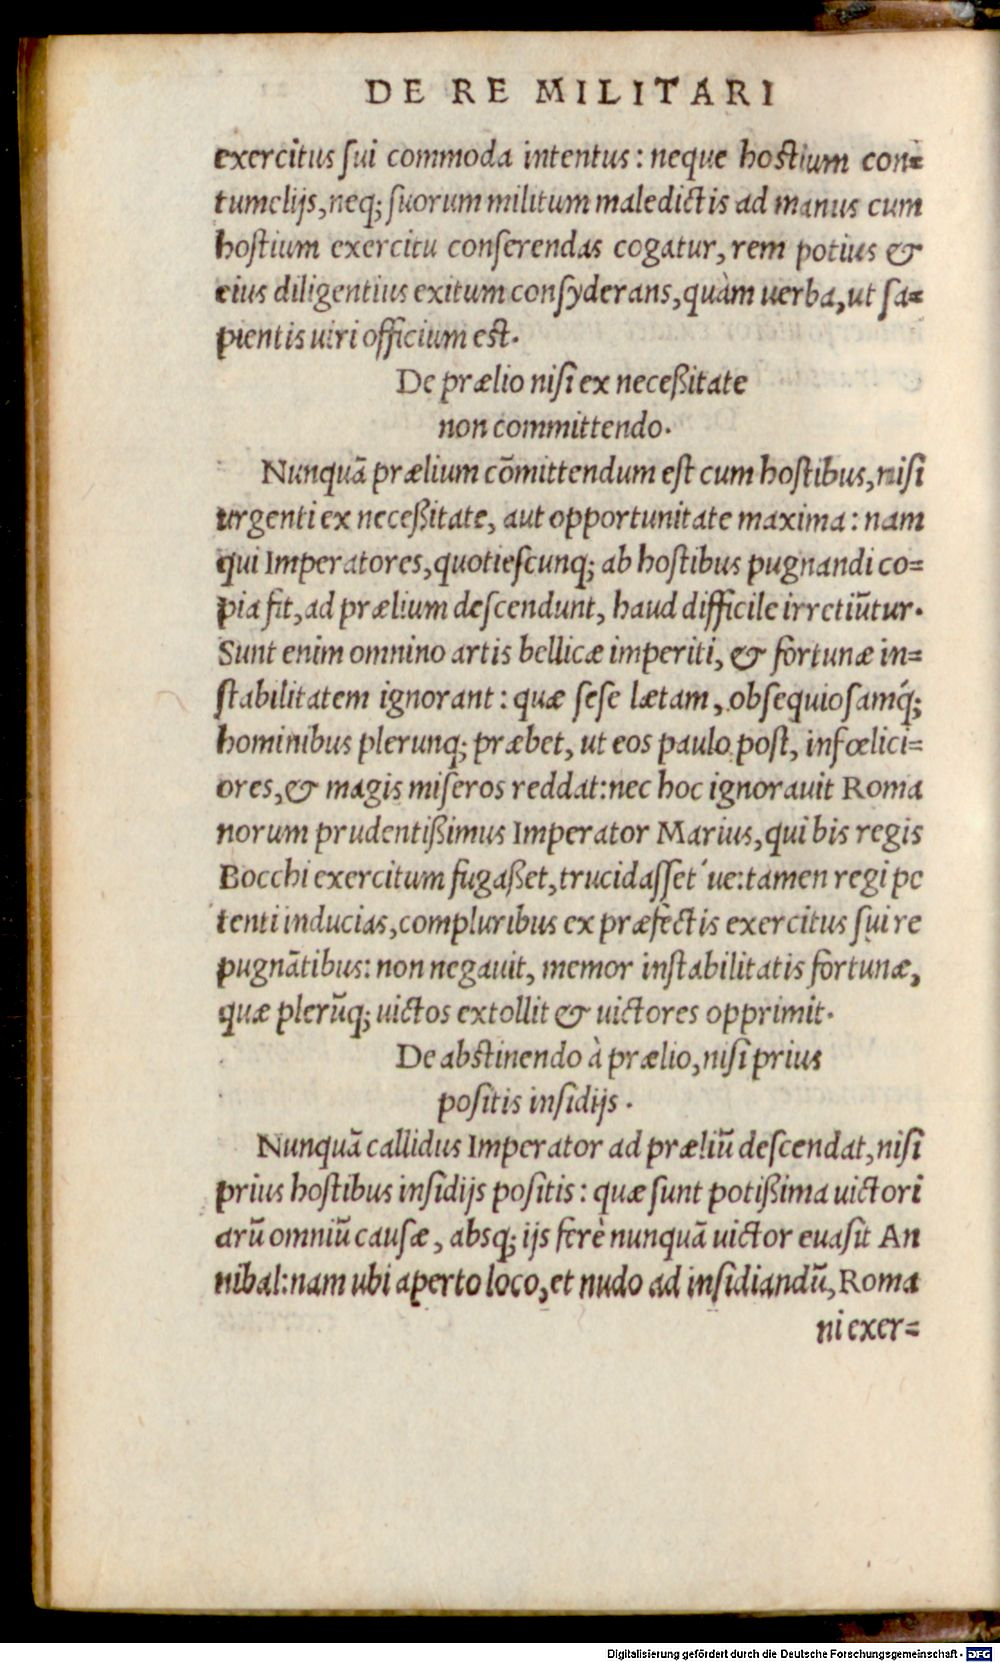 DE RE MILITARI
exercitus ſui commoda intentus: neque hoſtium con=
tumelijs, neq; ſuorum militum maledictis ad manus cum
hoſtium exercitu conſerendas cogatur, rem potius &
eius diligentius exitum conſyderans, quàm uerba, ut ſa=
pientis uiri officium eſt.
De prælio niſi ex neceßitate
non committendo.
Nunquā prælium cōmittendum eſt cum hoſtibus, niſi
urgenti ex neceßitate, aut opportunitate maxima: nam
qui Imperatores, quotieſcunq; ab hoſtibus pugnandi co=
pia fit, ad prælium deſcendunt, haud difficile irretiūtur.
Sunt enim omnino artis bellicæ imperiti, & fortunæ in=
ſtabilitatem ignorant: quæ ſeſe lætam, obſequioſamq́;
hominibus plerunq; præbet, ut eos paulo poſt, infœlici=
ores, & magis miſeros reddat: nec hoc ignorauit Roma
norum prudentißimus Imperator Marius, qui bis regis
Bocchi exercitum fugaßet, trucidaſſet´ue: tamen regi pe
tenti inducias, compluribus ex præfectis exercitus ſui re
pugnātibus: non negauit, memor inſtabilitatis fortunæ,
quæ plerūq; uictos extollit & uictores opprimit.
De abſtinendo à prælio, niſi prius
poſitis inſidijs.
Nunquā callidus Imperator ad præliū deſcendat, niſi
prius hoſtibus inſidijs poſitis: quæ ſunt potißima uictori
arū omniū cauſæ, absq; ijs ferè nunquā uictor euaſit An
nibal: nam ubi aperto loco, et nudo ad inſidiandū, Roma
ni exer=
Digitalisierung gefördert durch die Deutsche Forschungsgemeinschaft - DFG